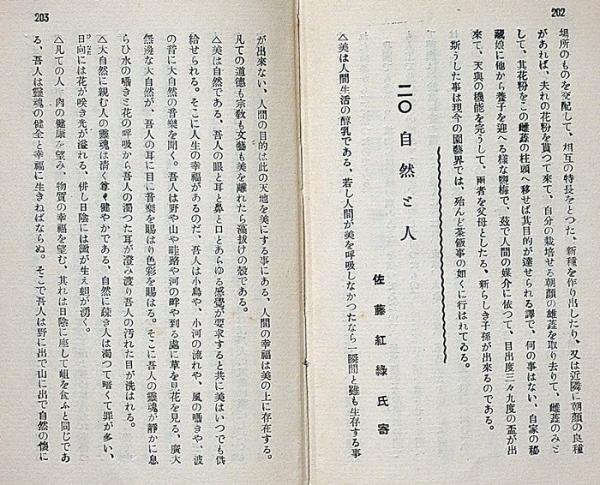 202
場所のものを交配して、相互の特長をとつた、新種を作り出したり、又は近隣に朝顔の良種
があれば、夫れの花粉を貰つて來て、自分の栽培せる朝顔の雄蕋を取り去りて、雌蕋のみと
して、其花粉をこの雌蕋の柱頭へ移せば其目的が達せられる譯で、何の事はない、自家の秘
藏娘に他から養子を迎へる様な塩梅で、茲で人間の媒介に依つて、目出度三々九度の盃が出
來て、天與の機能を完うして、兩者を父母としたる、新らしき子孫が出來るのである。
斯うした事は現今の園藝界では、殆んど茶飯事の如くに行はれてゐる。
二〇 自然と人
佐藤紅綠氏寄
△美は人間生活の醇乳である、若し人間が美を呼吸しなかつたなら一瞬間と雖も生存する事
203
が出來ない、人間の目的は此の天地を美にする事にある、人間の幸福は美の上に存在する。
凡ての道德も宗敎も文藝も美を離れたら藻拔けの殼である。
△美は自然である、吾人の眼と耳と鼻と口とあらゆる感覺が要求すると共に美はいつでも供
給せられる。そこに人生の幸福があるのだ、吾人は小鳥や、小河の流れや、風の囁きや一波
の音に大自然の音樂を聞く。吾人は野や山や畦路や河の畔や到る處に草を見花を見る、廣大
無邊な大自然が、吾人の耳に目に音樂を賜はり色彩を賜はる。そこに吾人の靈魂が靜かに息
らひ水の囁きと花の呼吸から吾人の濁つた耳が澄み渡り吾人の汚れた目が洗はれる。
△大自然に親む人の靈魂は淸く尊く健やかである、自然に疎き人は濁つて暗くて罪が多い、
日向には花が咲き光が溢れる、併し日陰には黴が生え蛆が湧く。
△凡ての人 肉の健康を望み、物質の幸福を望む、其れは日陰に座して蛆を食ふと同じであ
る、吾人は靈魂の健全と幸福に生きねばならぬ。そこで吾人は野に出で山に出で自然の懷に